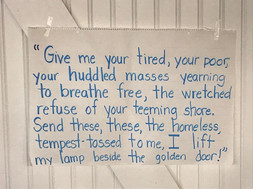 "Give me your tired, your poor,
your huddled masses yearning
to breathe free, the wretched
refuse of your teeming shore.
Send these, these, the homeless,
tempest-tossed to me, I lift
my lamp beside the golden door!"